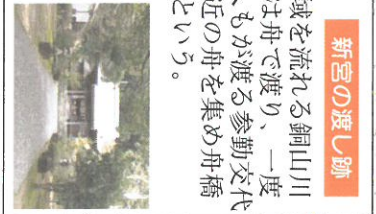 新宮の渡し跡
域を流れる銅山川
は舟で渡り、一度
もが渡る参勤交代
近の舟を集め舟橋
という。